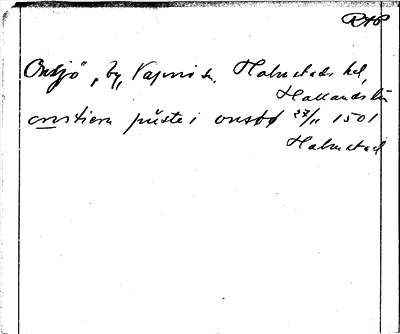 RAP
Onsjö, by, Vapnö sn, Halmstads hd,
Hallands län
cristiern püste i onsød 27/11 1501
Halmstad